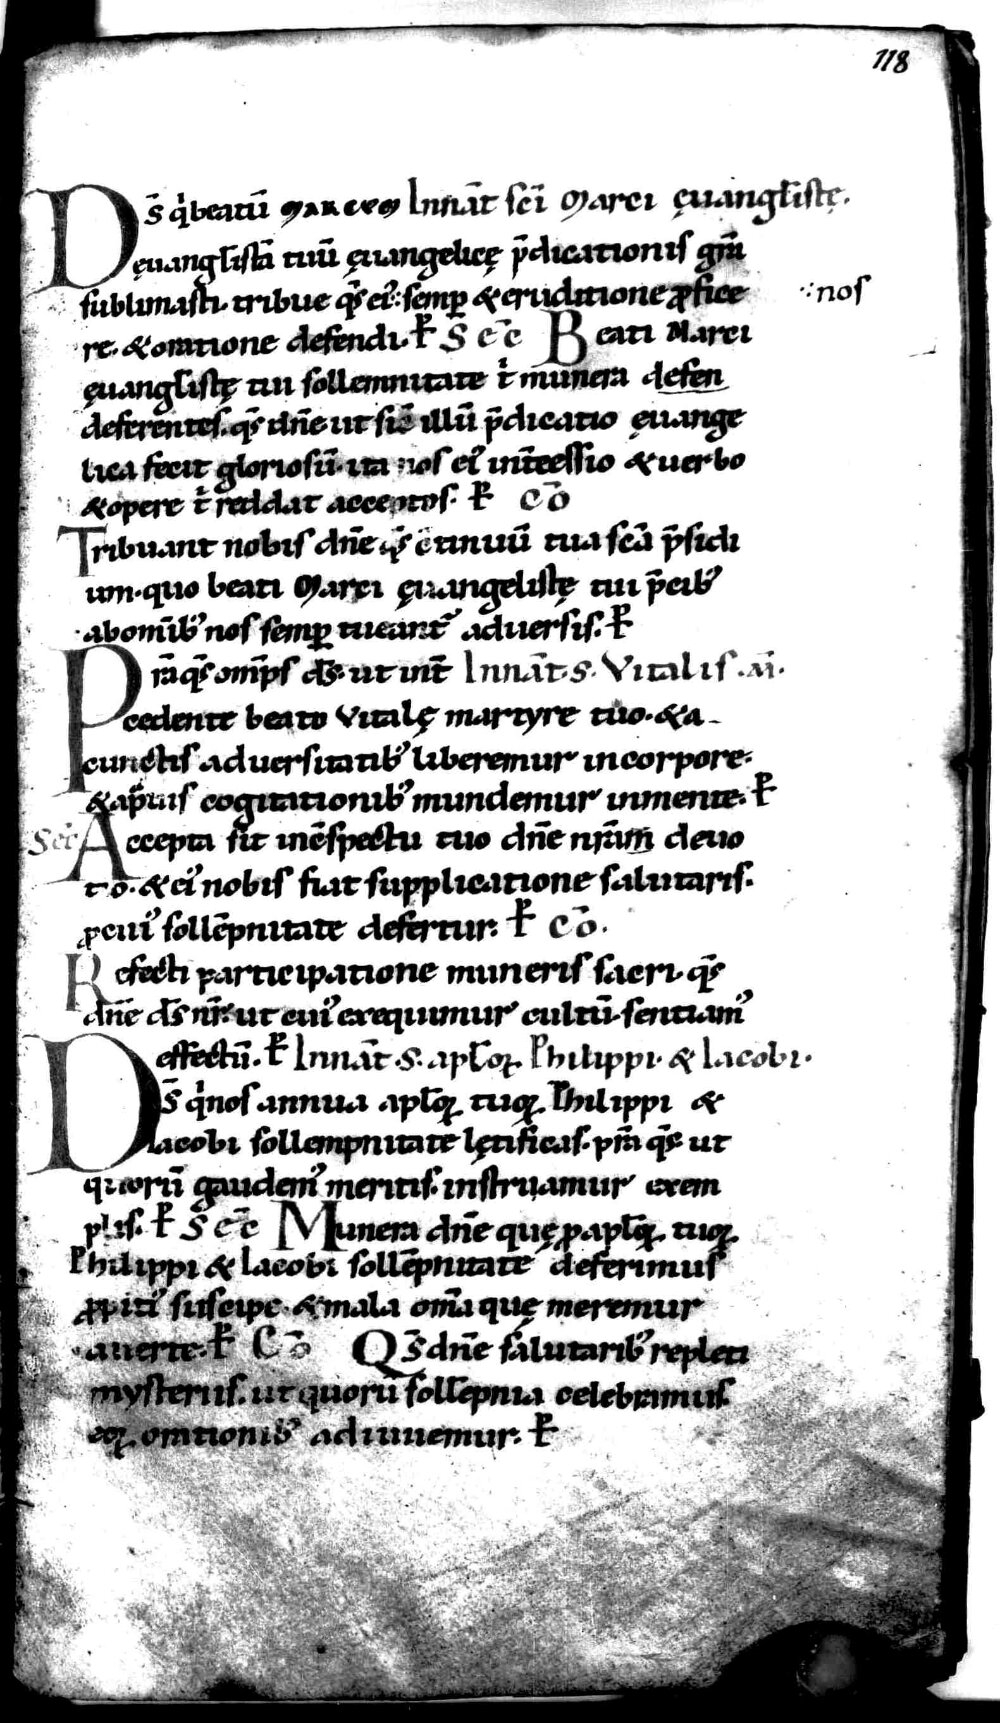 118
D̄s q̇ beatū marcum Innāt sc̄i Marci ęuangl̄istę.
ęuangl̄istā tuū ęuangelicę p̄dicationis grā
sublimasti. tribue q̄s ei᷒ semꝑ & eruditione ꝓfice :nos
re. & oratione defendi. ꝑ S̄ec̄ Beati Marci
ęuangl̄istę tui sollemnitate t̄ munera defen
deferentes. q̄s dn̄e ut sic̄ illū p̄dicatio ęuange
lica fecit gloriosū. ita nos ei᷒ int̄cessio & uerbo
& opere t̄ reddat acceptos. ꝑ cō
Tribuant nobis dn̄e q̄s c̄tinuū tua sc̄a p̄sidi
um. quo beati Marci ęuangelistę tui p̄cib᷒
ab omīb᷒ nos semꝑ tueant᷒ aduersis. ꝑ
Prā q̄s omp̄s d̄s. ut int̄ Innāt. S. Vitalis. m̄.
cedente beato Vitalę martyre tuo. & a
cunctis aduersitatib᷒ liberemur in corpore.
& a p̄uis cogitationib᷒ mundemur in mente. ꝑ
Sēc Accepta sit in c̄spectu tuo dn̄e nr̄am deuo
tio. & ei᷒ nobis fiat supplicatione salutaris.
ꝓ cui᷒ soll̄epnitate defertur. ꝑ Cō.
Refecti participatione muneris sacri. q̄s
dn̄e d̄s nr̄. ut cui᷒ exequimur cultū. sentiam᷒
effectū. ꝑ Innāt. S. apl̄oꝝ Philippi. & Iacobi.
D̄s q̇ nos annua apl̄oꝝ tuoꝝ Philippi &
Iacobi sollempnitate lętificas. prā q̄s. ut
quorū gaudem᷒ meritis. instruamur exem
plis. ꝑ S̄ec̄ Munera dn̄e quę ꝓ apl̄oꝝ tuoꝝ
Philippi & Iacobi soll̄epnitate deferimus
ꝓpiti᷒ suscipe. & mala om̄a quę meremur
auerte. ꝑ Cō Q̄s dn̄e salutarib᷒ repleti
mysteriis. ut quorū soll̄epnia celebramus.
eoꝝ orationib᷒ adiuuemur. ꝑ